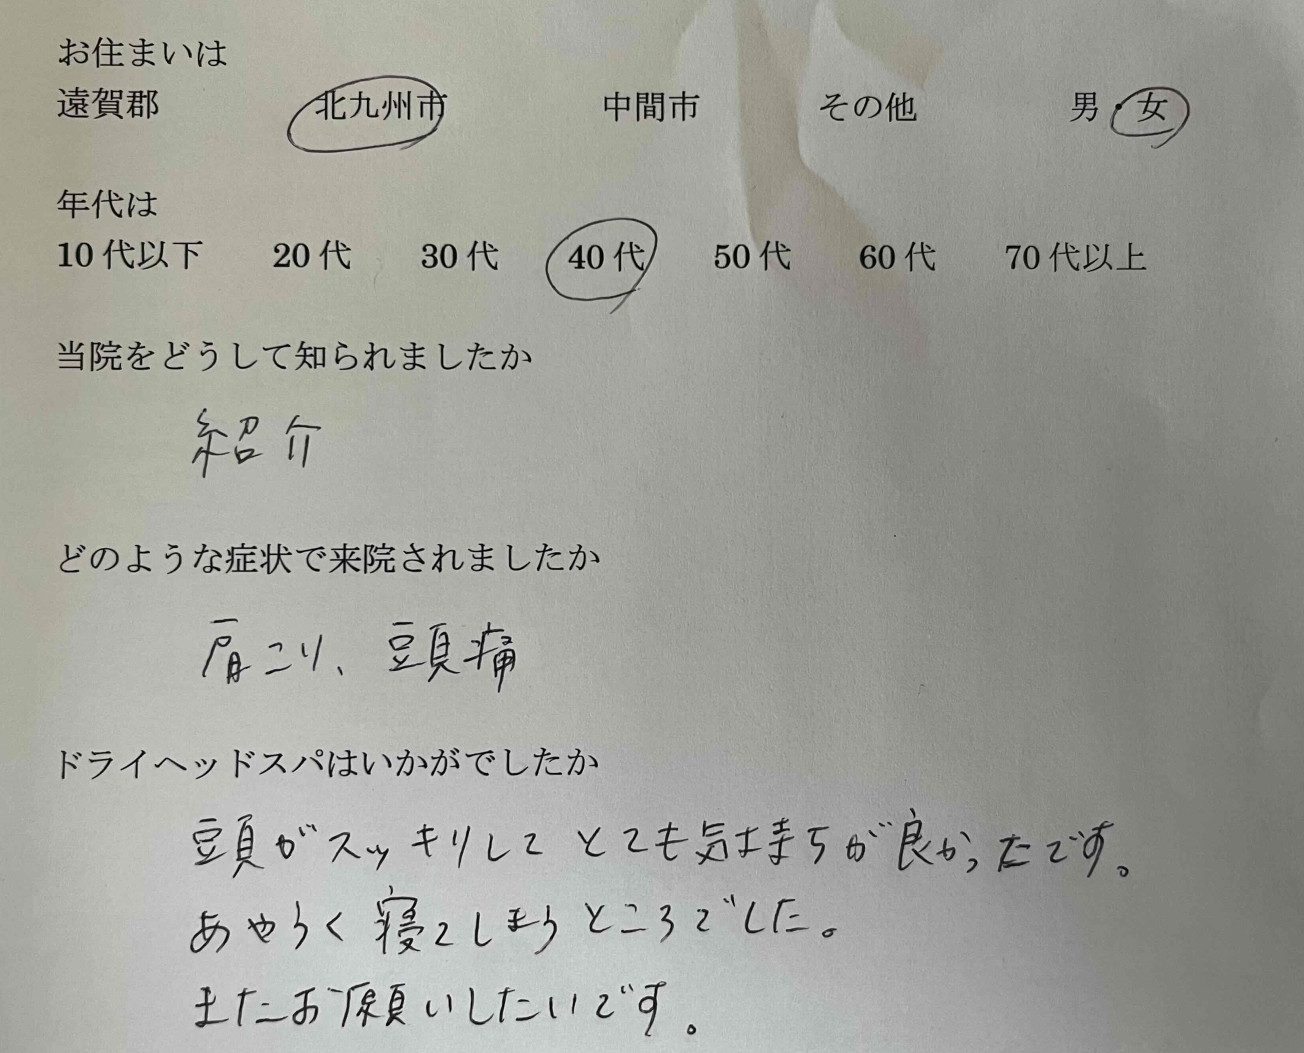 お住まいは
遠賀郡 北九州市 中間市 その他 男・女
年代は
10代以下 20代 30代 40代 50代 60代 70代以上
当院をどうして知られましたか
紹介
どのような症状で来院されましたか
肩こり、頭痛
ドライヘッドスパはいかがでしたか
頭がスッキリしてとても気持ちが良かったです。
あやうく寝てしまうところでした。
またお願いしたいです。